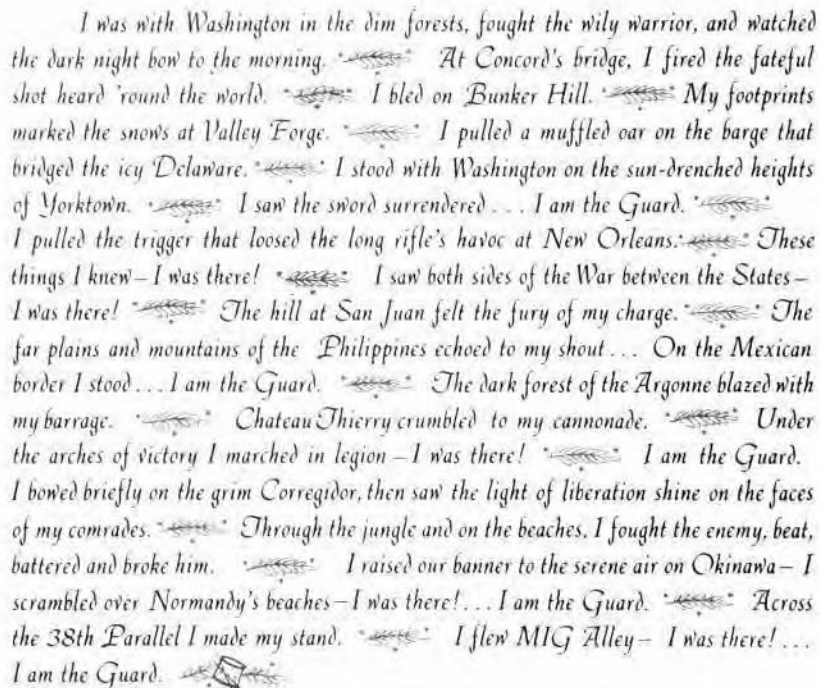 I was with Washington in the dim forests, fought the wily warrior, and watched
the dark night bow to the morning. At Concord's bridge, I fired the fateful
shot heard 'round the world. I bled on Bunker Hill. My footprints
marked the snows at Valley Forge. I pulled a muffled oar on the barge that
bridged the icy Delaware. I stood with Washington on the sun-drenched heights
of Yorktown. I saw the sword surrendered... I am the Guard.
I pulled the trigger that loosed the long rifle's havoc at New Orleans. These
things I knew—I was there! I saw both sides of the War between the States—
I was there! The hill at San Juan felt the fury of my charge. The
far plains and mountains of the Philippines echoed to my shout... On the Mexican
border I stood...I am the Guard. The dark forest of the Argonne blazed with
my barrage. Chateau Thierry crumbled to my cannonade. Under
the arches of victory I marched in legion—I was there! I am the Guard.
I bowed briefly on the grim Corregidor, then saw the light of liberation shine on the faces
of my comrades. Through the jungle and on the beaches, I fought the enemy, beat,
battered and broke him. I raised our banner to the serene air on Okinawa—I
scrambled over Normandy's beaches—I was there!...I am the Guard. Across
the 38th Parallel I made my stand. I flew MIG Alley— I was there!...
I am the Guard.